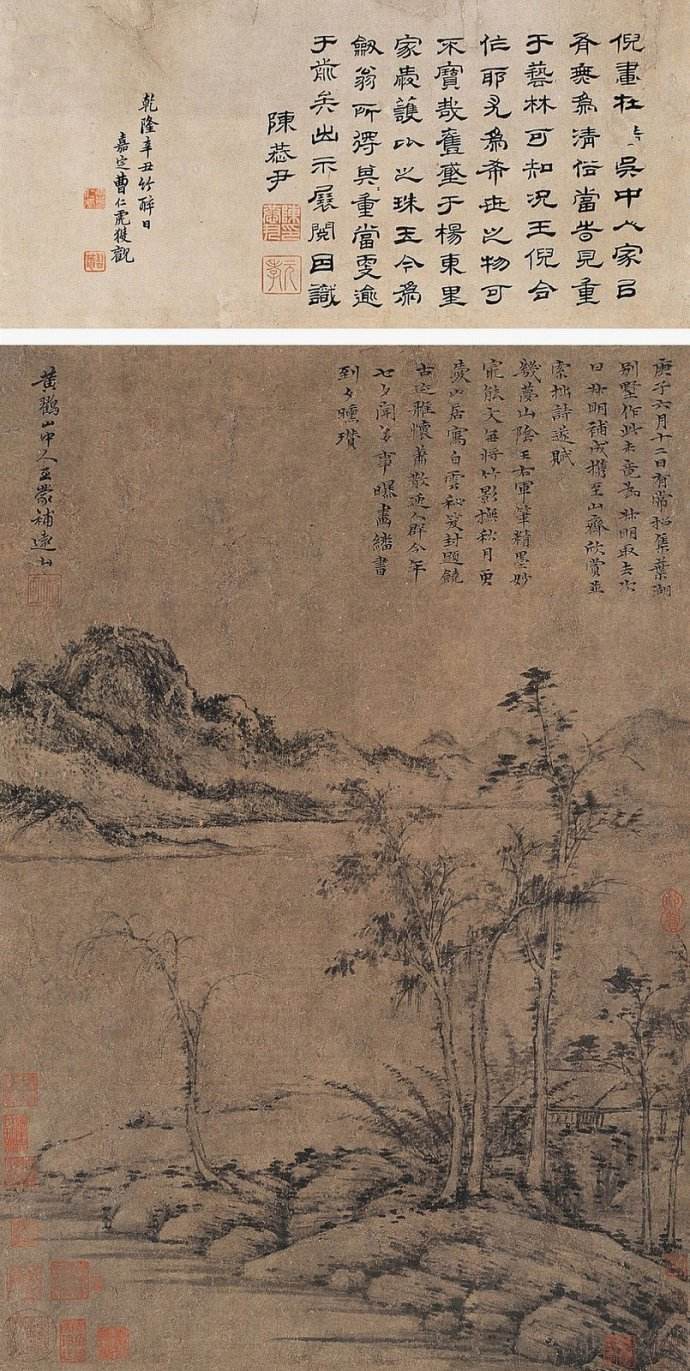 倪畫在時吳中人家㠯
有無為清俗當昔見重
于藝林可知況王倪合
作耶尤為希世之物可
不寶哉舊藏于楊東里
家嚴護比之珠玉今為
劒翁所得其重當更逾
于前矣出示展閱因識
陳恭尹
乾隆辛丑竹醉日
嘉定曹仁虎獲觀
庚子六月十二日有常招集葉湖
別墅作此未竟為叔明取去次
日叔明補成攜至山齋欣賞並
索拙詩遂賦
幾夢山陰王右軍筆精墨妙
最能文每將竹影撫秋月更
愛山居寫白雲祕笈封題饒
古迹雅懷蕭散逈人群今年
七夕聞多事曝畫繙書
到夕曛瓚
黃鶴山中人王蒙補遠山